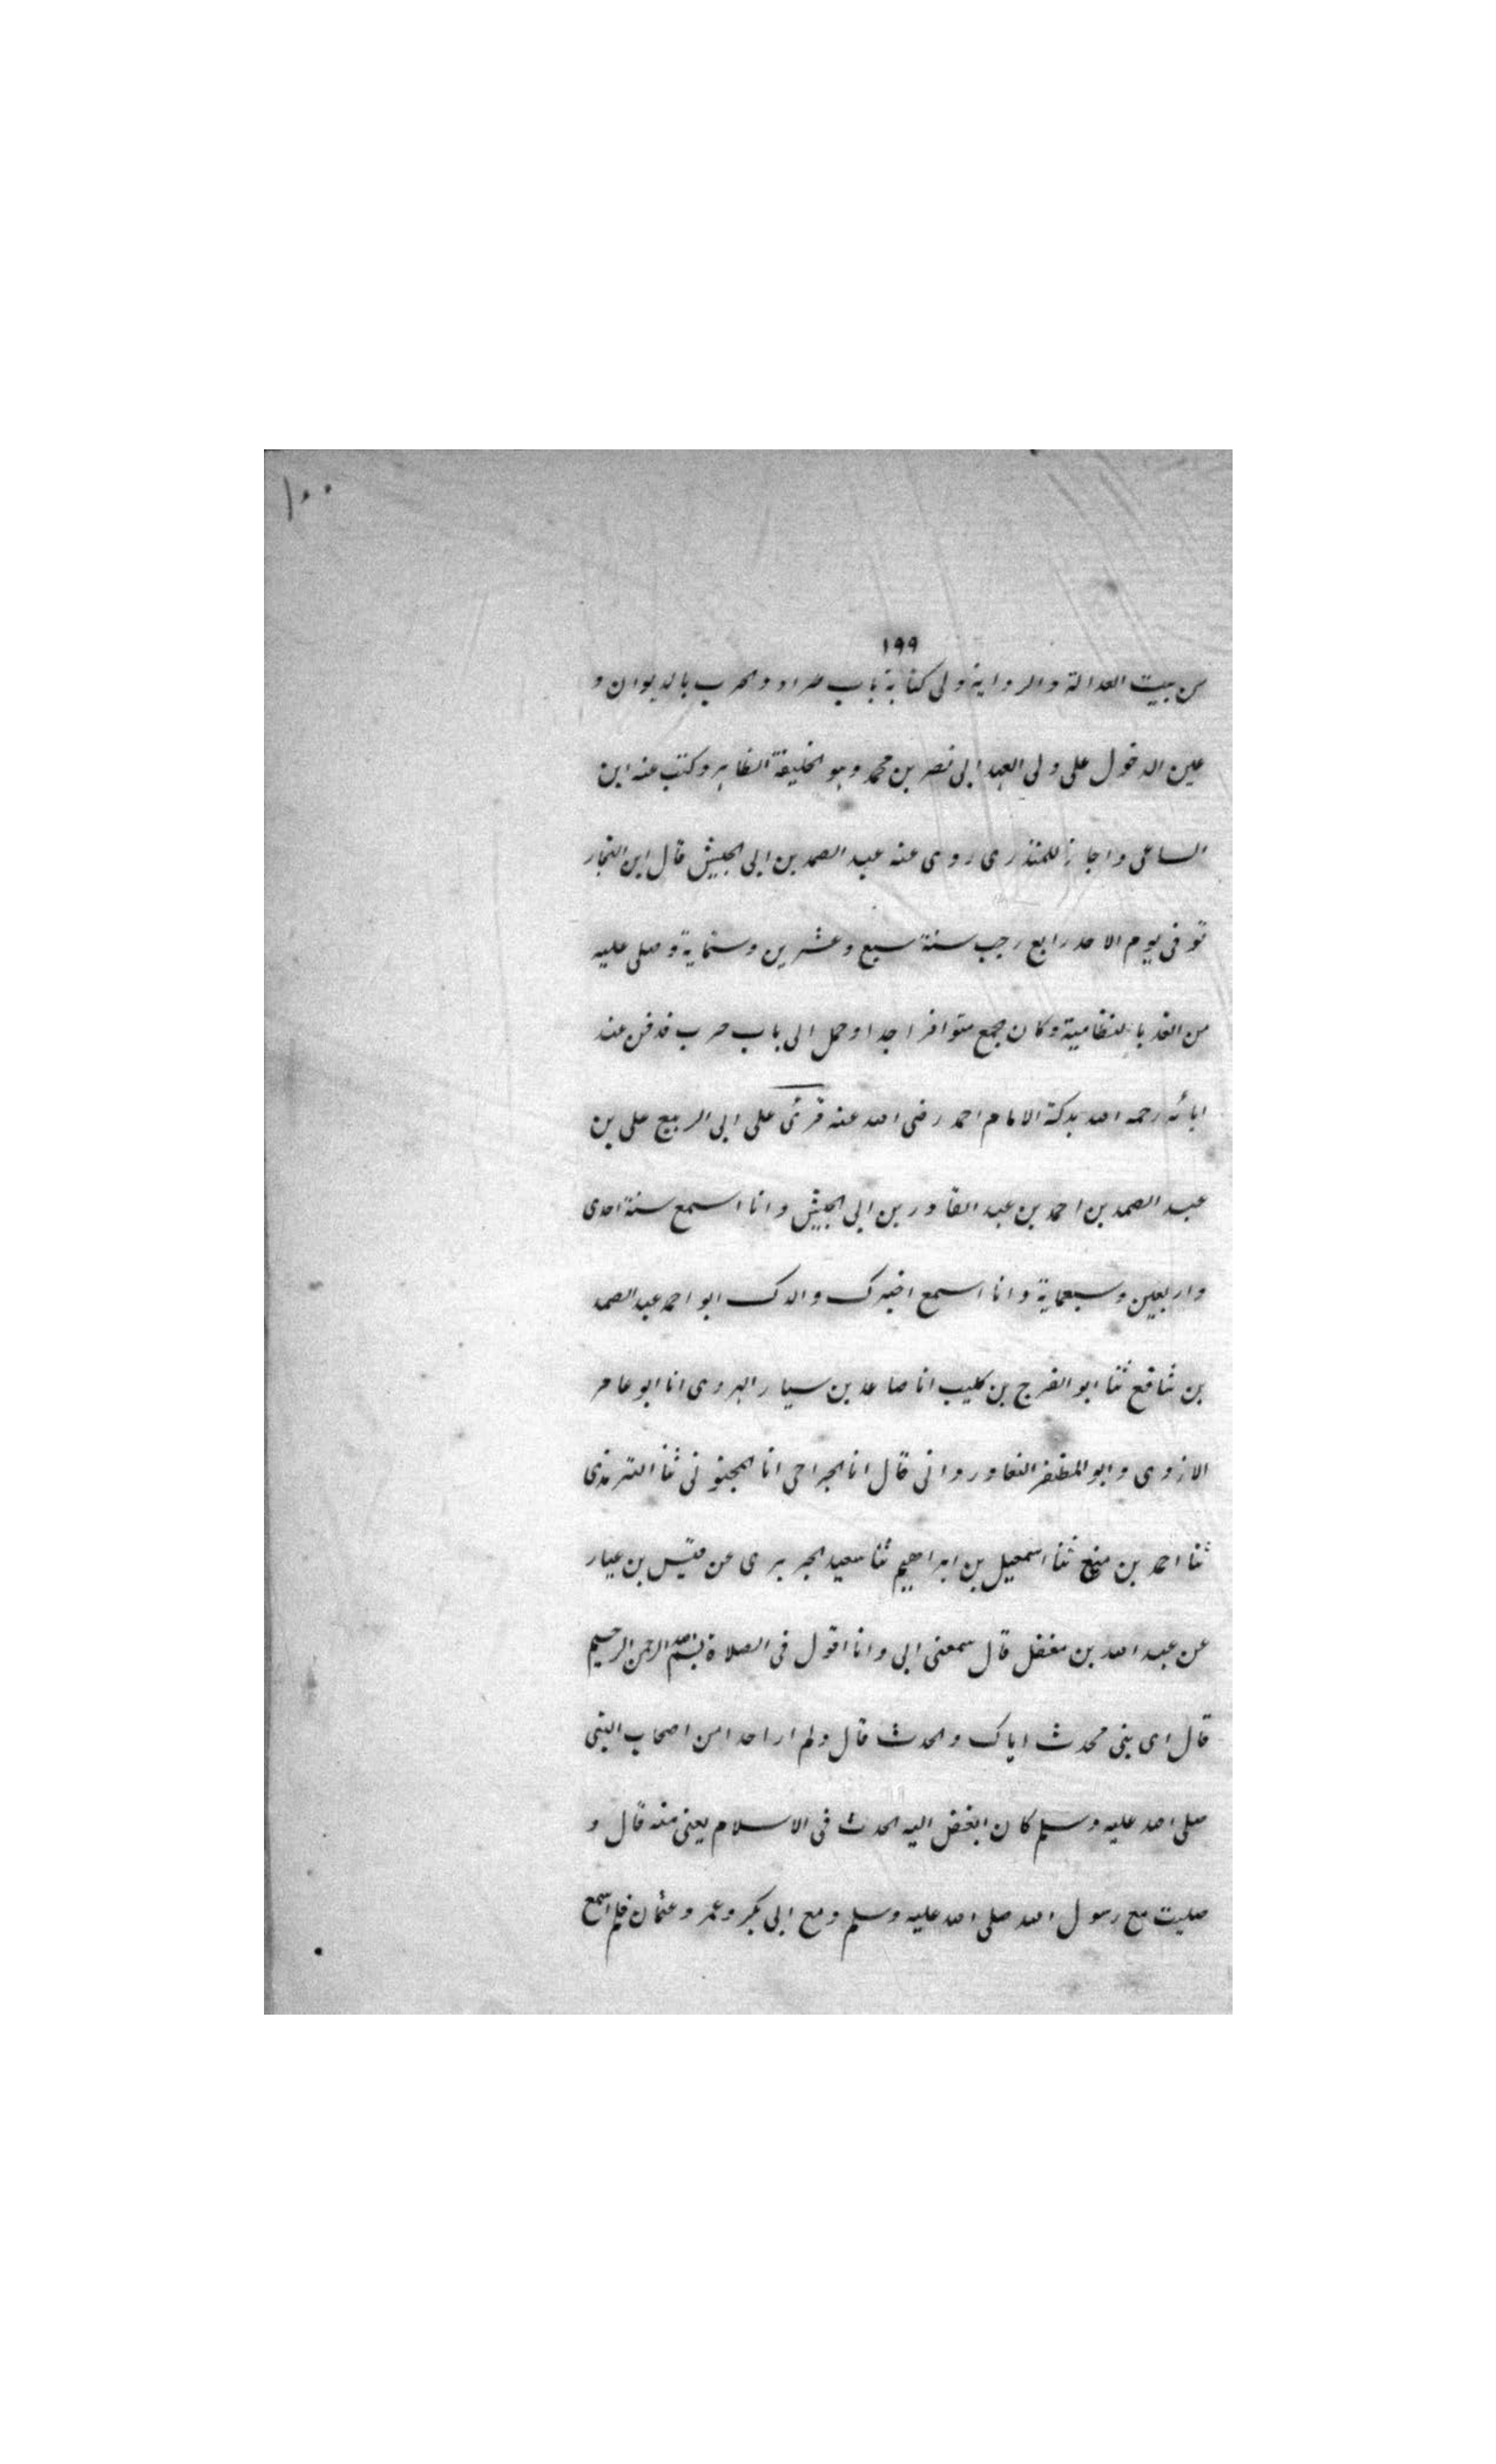 ١٠٠
١٩٩
من بيت العدالة والرواية ولى كتابة باب طراد والحرب بالديوان و
عين الدخول على ولى العهد ابى نصر بن محمد وهو الخليفة الظاهر وكتب عنه ابن
الساعى واجاز للمنذرى روى عنه عبد الصمد بن ابى الجيش قال ابن النجار
توفى يوم الاحد رابع رجب سنة سبع وعشرين وستماية وصلى عليه
من الغد بالنظامية وكان جمع متوافرا جدا وحمل الى باب حرب فدفن عند
ابائه رحمه الله بدكة الامام احمد رضى الله عنه قرئ على ابى الربيع على بن
عبد الصمد بن احمد بن عبد القادر بن ابى الجيش وانا اسمع سنة احدى
واربعين وسبعماية وانا اسمع اخبرك والدك ابو احمد عبد الصمد
بن شافع ثنا ابو الفرج بن كليب انا صاعد بن سيار الهروى انا ابو عامر
الازدى وابو المظفر قال انا الجراحى انا المحبوبى ثنا الترمذى
ثنا احمد بن منيع ثنا اسمعيل بن ابراهيم ثنا سعيد الجريرى عن قيس بن عبار
عن عبد الله بن مغفل قال سمعنى ابى وانا اقول فى الصلاة بسم الله الرحمن الرحيم
قال اى بنى محدث اياك والحدث قال ولم ار احدا من اصحاب النبى
صلى الله عليه وسلم كان ابغض اليه الحدث فى الاسلام يعنى منه قال و
صليت مع رسول الله صلى الله عليه وسلم ومع ابى بكر وعمر وعثمان فلم اسمع